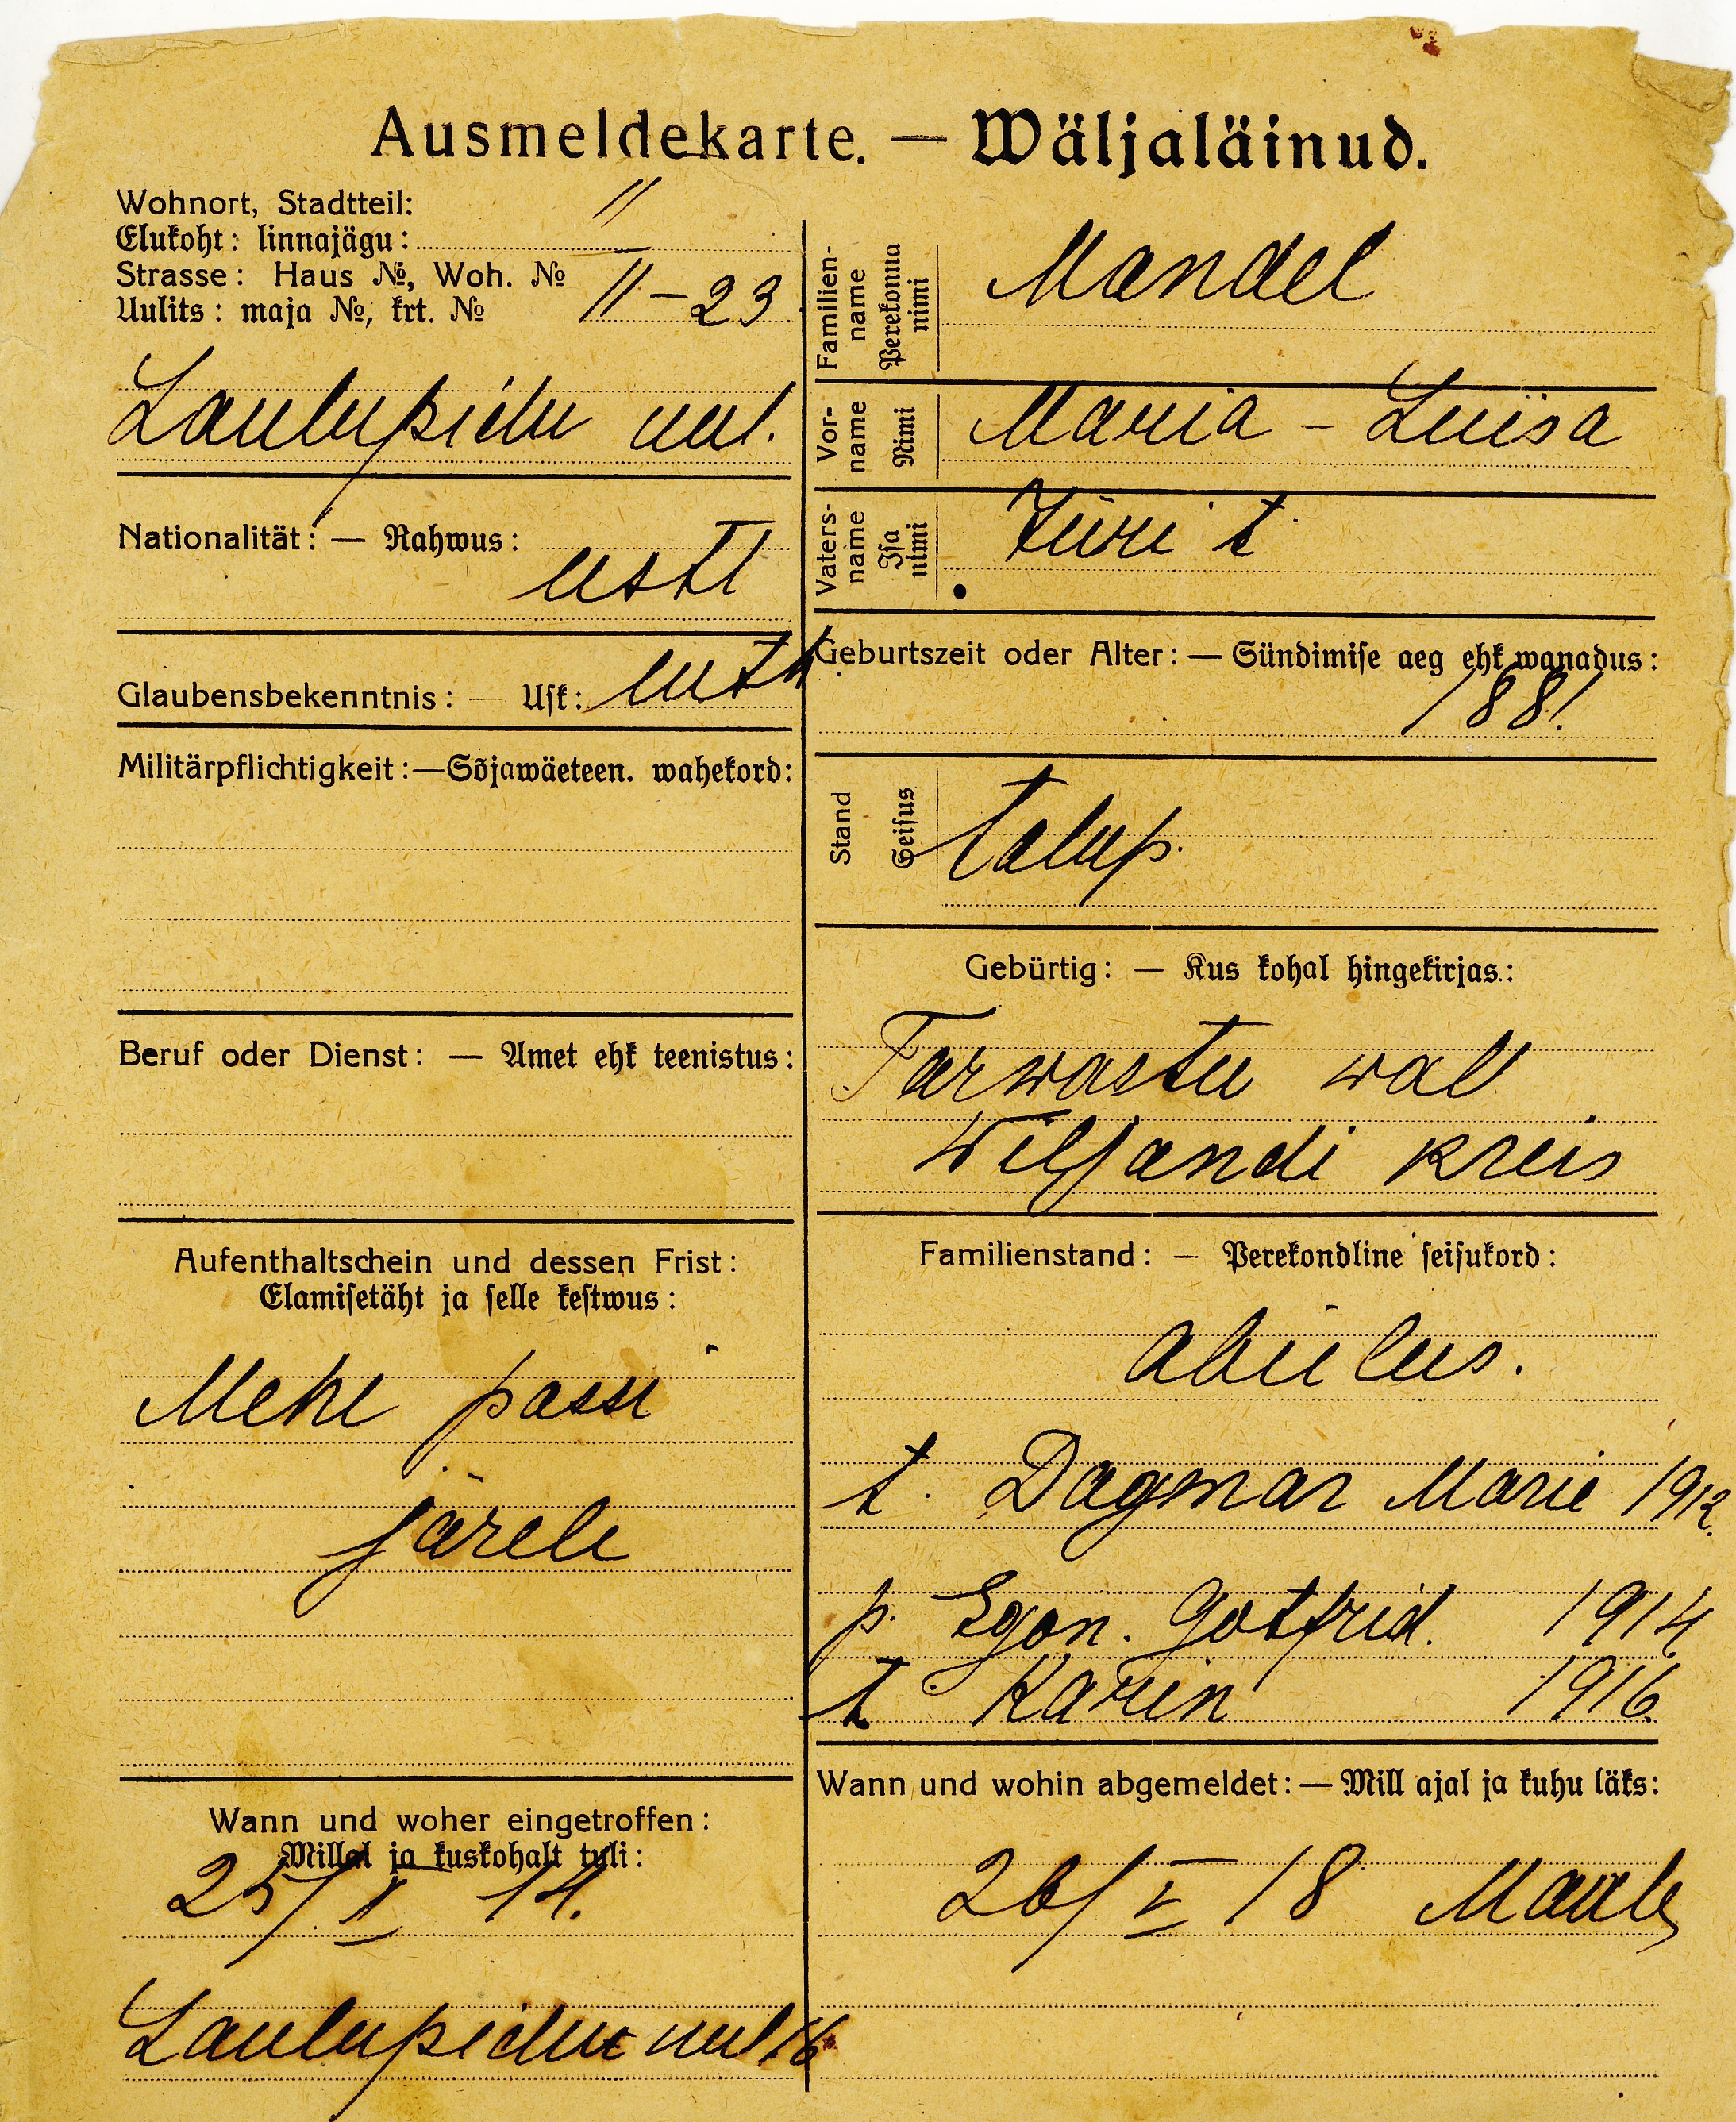 Ausmeldekarte. — Wäljaläinud.
Wohnort, Stadtteil:
Elukoht: linnajägu: II
Strasse: Haus №, Woh. №
Uulits: maja №, krt. № 11-23
Laulupidu uul.
Nationalität: — Rahwus:
eestl
Glaubensbekenntnis: — Usk: luth
Militärpflichtigkeit: — Sõjawäeteen. wahekord:
Beruf oder Dienst: — Amet ehk teenistus:
Aufenthaltschein und dessen Frist:
Elamisetäht ja selle kestwus:
Mehe passi
järele
Wann und woher eingetroffen:
Millal ja kuskohalt tuli:
25/X 14.
Laulupidu uul 16
Familien-
name
Perekonna
nimi
Mandel
Vor-
name
Nimi
Maria - Luisa
Vaters-
name
Isa
nimi
Jüri t.
Geburtszeit oder Alter: — Sündimise aeg ehk wanadus:
1881.
Stand
Seisus
talup.
Gebürtig: — Kus kohal hingekirjas.:
Tarwastu wall
Wiljandi kreis
Familienstand: — Perekondline seisukord:
abielus.
t. Dagmar Marie 1912.
p. Egon. Gotfrid. 1914
t. Karin 1916.
Wann und wohin abgemeldet: — Mill ajal ja kuhu läks:
26/V 18 Maale